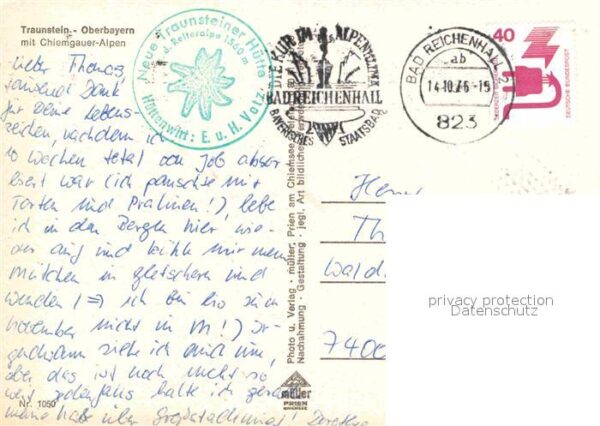 Traunstein - Oberbayern
mit Chiemgauer-Alpen
Lieber Thomas,
tausend Dank
für Deine Lebens-
zeichen, nachdem ich
10 Wochen total vom Job absor-
biert war (ich pansche mit
Torten und Pralinen!) lebe
ich in den Bergen hier wie-
der auf und kühle mir mein
Mütchen in Gletschern und
Wänden (⇒ ich bin bis zum
November nicht in M!) Ir-
gendwann ziehe ich auch um,
aber das ist noch nicht so
weit jedenfalls halte ich gerade
meine
über Großstadtluring!
Nr. 1050
Neue Traunsteiner Hütte
a.d. Reiteralpe 1560 m
Hüttenwirt: E. u. H. Votz
DIE KUR IM ALPENKLIMA
BAD REICHENHALL
BAYERISCHES STAATSBAD
BAD REICHENHALL 2
ab
14.10.76-15
823
40
DEUTSCHE BUNDESPOST
Photo u. Verlag · müller, Prien am Chiemsee
Nachahmung · Gestaltung · jegl. Art bildlicher
müller
PRIEN
CHIEMSEE
Herrn
Th
Wald
7400
privacy protection
Datenschutz